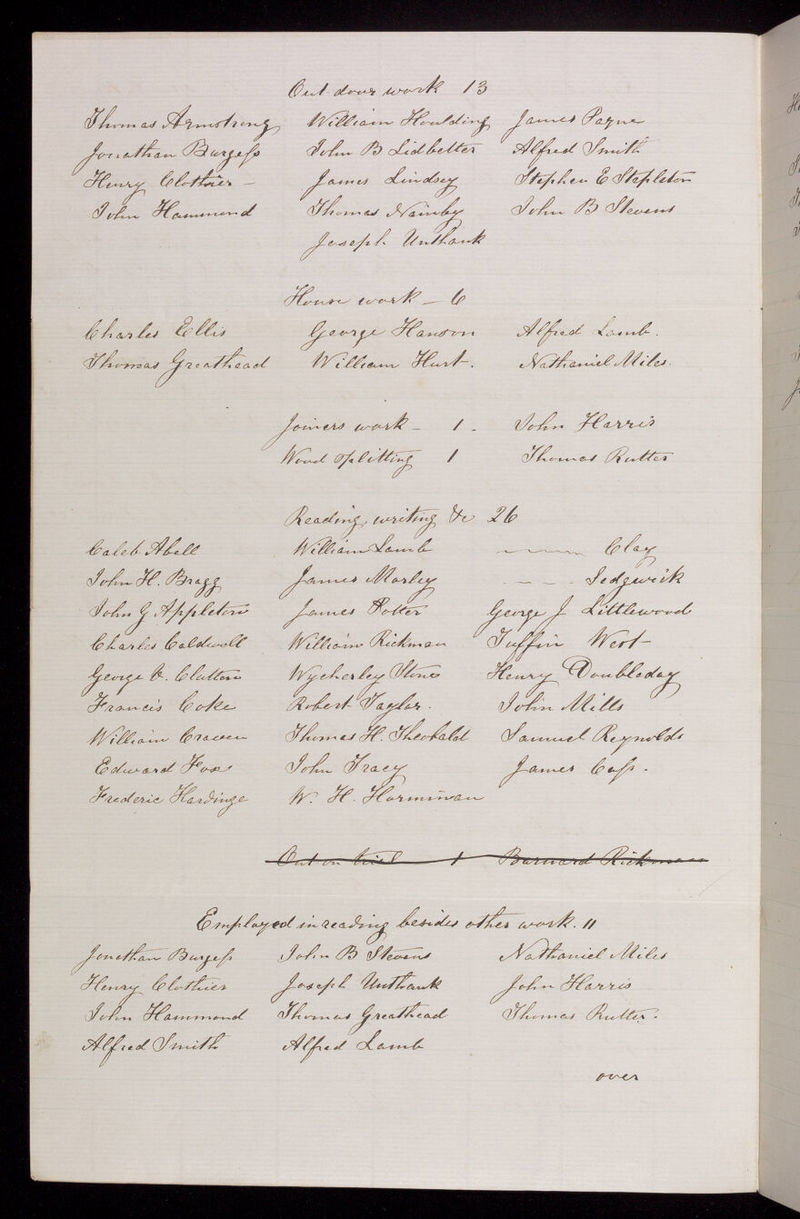 Out door work 13
Thomas Armstrong William Houlding James Payne
Jonathan Burgess John B Lidbetter Alfred Smith
Henry Clothier - James Lindsey Stephen E Stapleton
John Hammond Thomas Naimby John B Stevens
Joseph Unthank
House work - 6
Charles Ellis George Hanson Alfred Lamb.
Thomas Greathead William Hurt. Nathaniel Miles.
Joiners work - 1 - John Harris
Wood splitting 1 Thomas Rutter
Reading, writing &c 26
Caleb Abell William Lamb Clay
John H. Bragg James Marley Sedgwick
John G Appleton James Potter George J Littlewood
Charles Caldwell William Rickman Tuffin West
George Clutton Wycherley Stones Henry Doubleday
Francis Coke Robert Taylor. John Mills
William Craven Thomas H. Theobald Samuel Reynolds
Edward Fox John Tracy James Cass.
Frederic Hardinge W. H. Harminan
Out on trial 1 Barnard Rickman
Employed in reading besides other work. 11
Jonathan Burgess John B Stevens Nathaniel Miles
Henry Clothier Joseph Unthank John Harris
John Hammond Thomas Greathead Thomas Rutter.
Alfred Smith Alfred Lamb
over